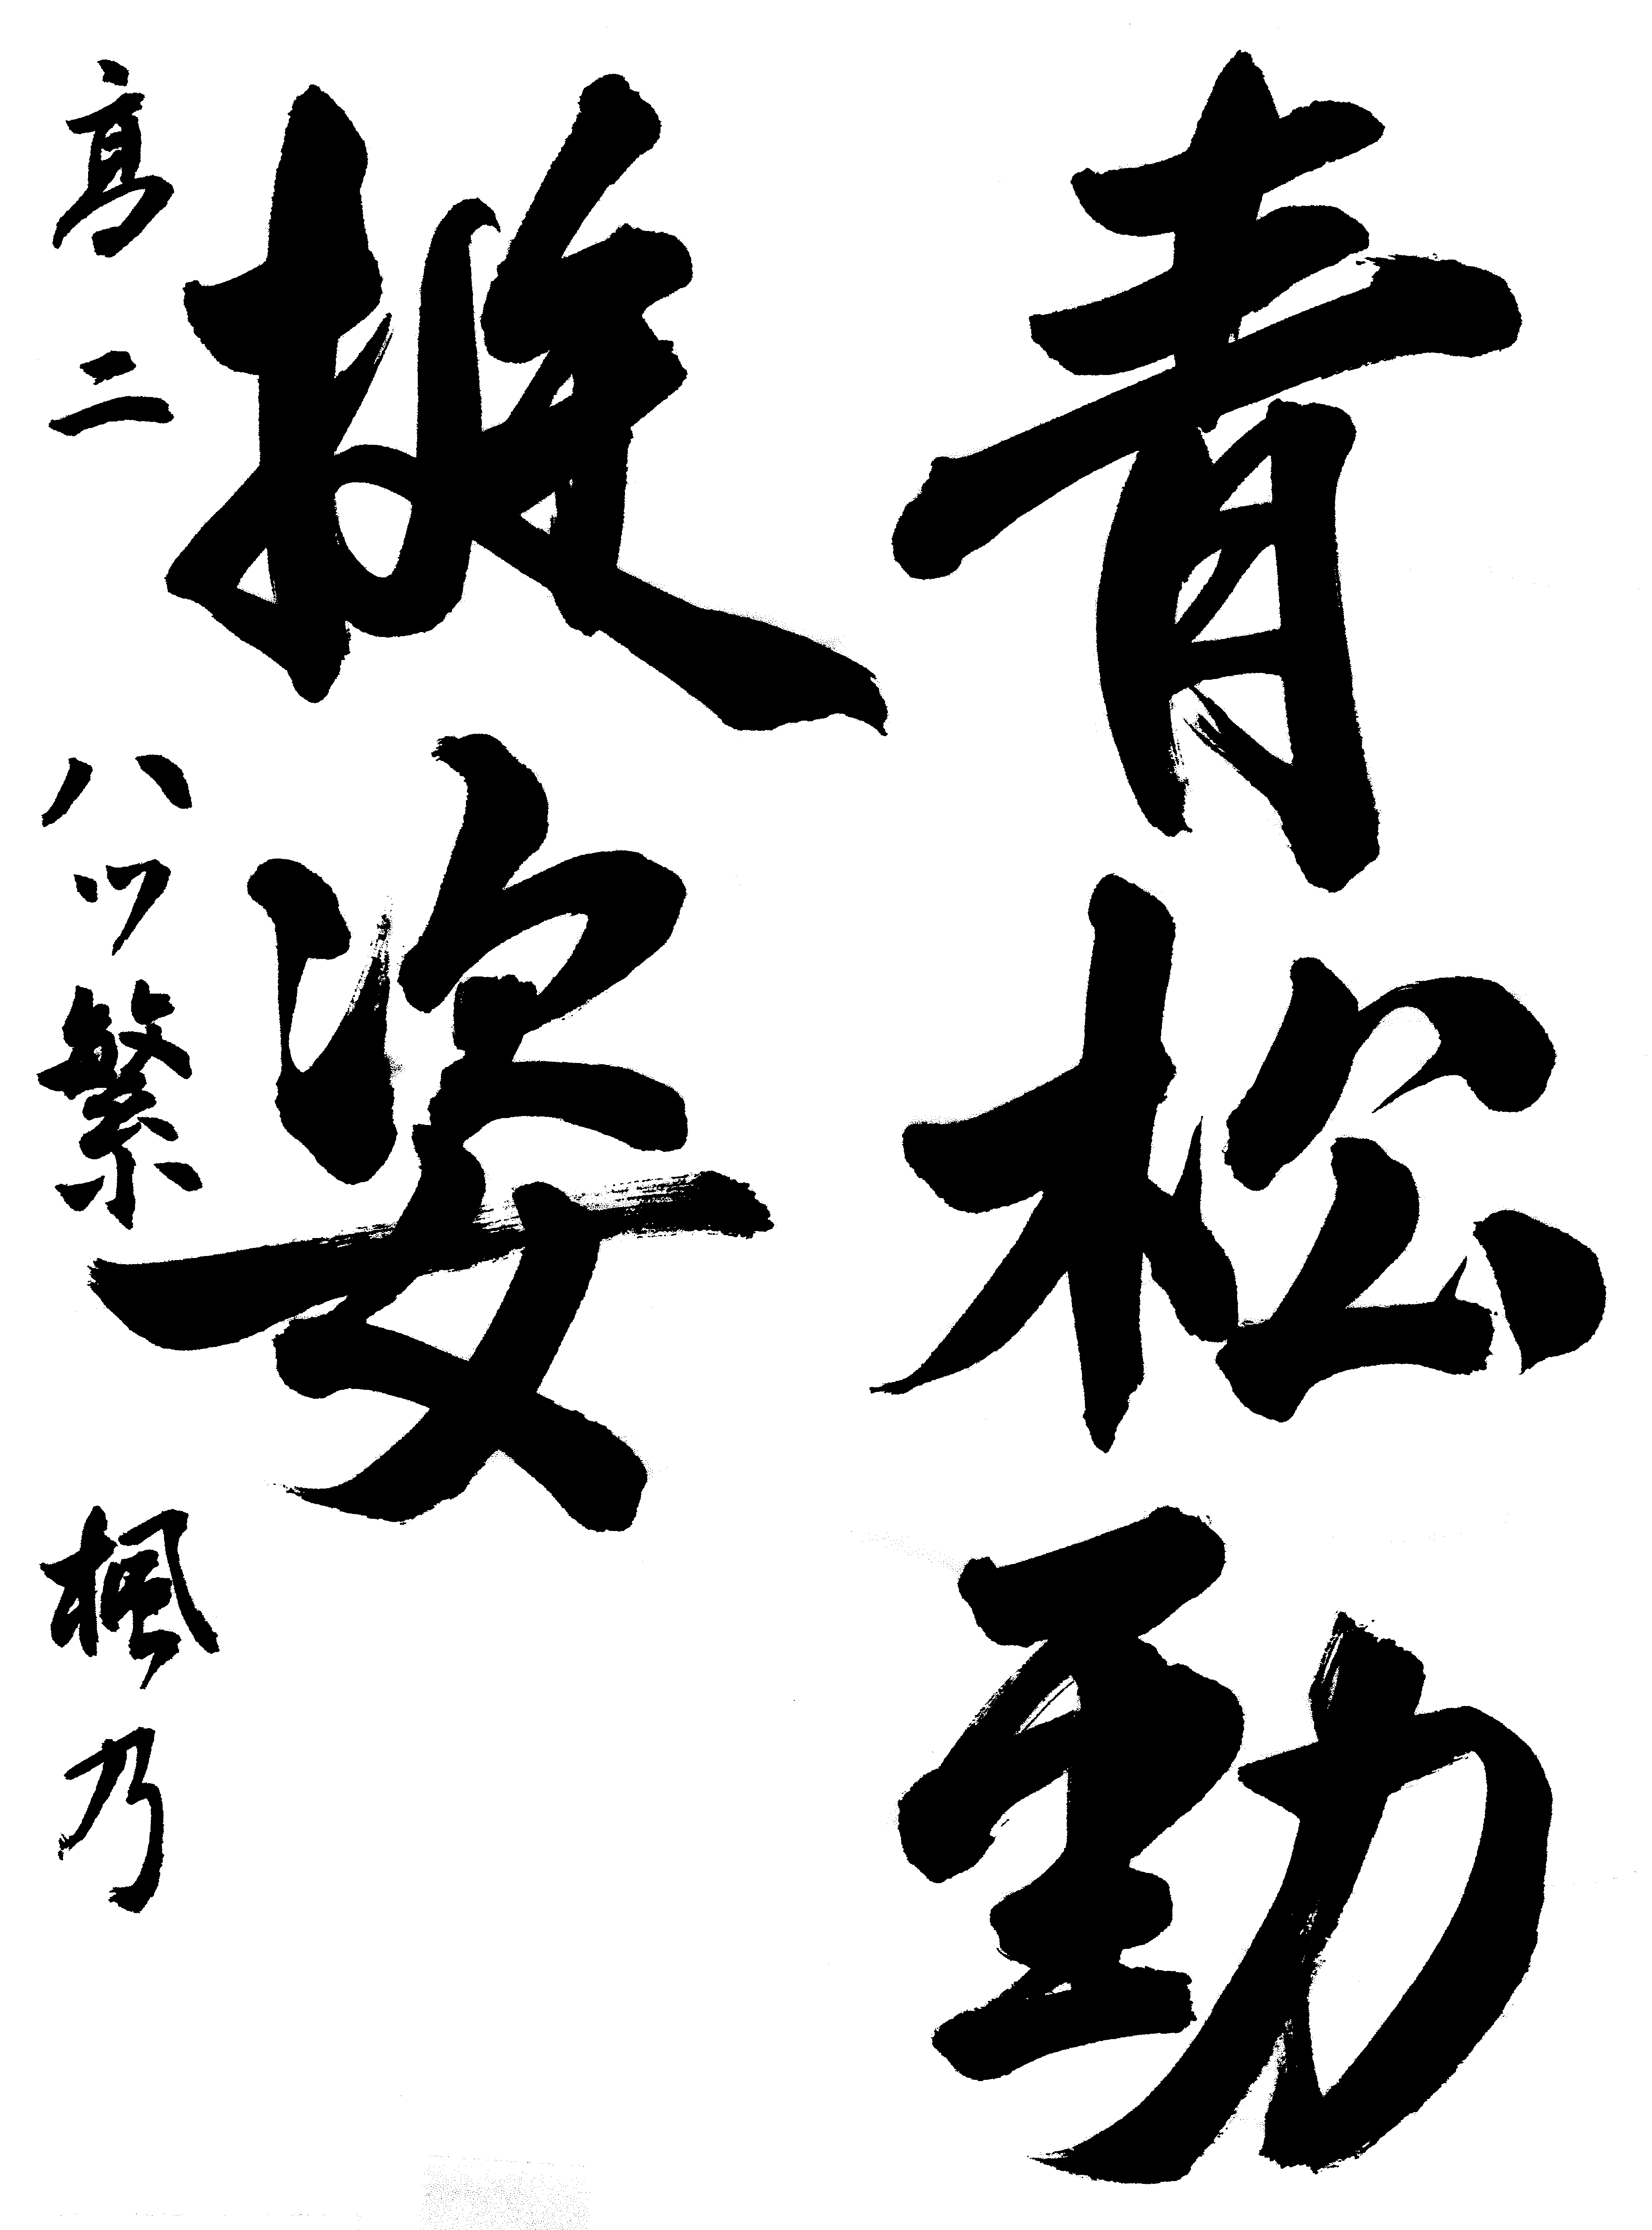 青松勁
挺姿
高二 八ツ繁 楓乃